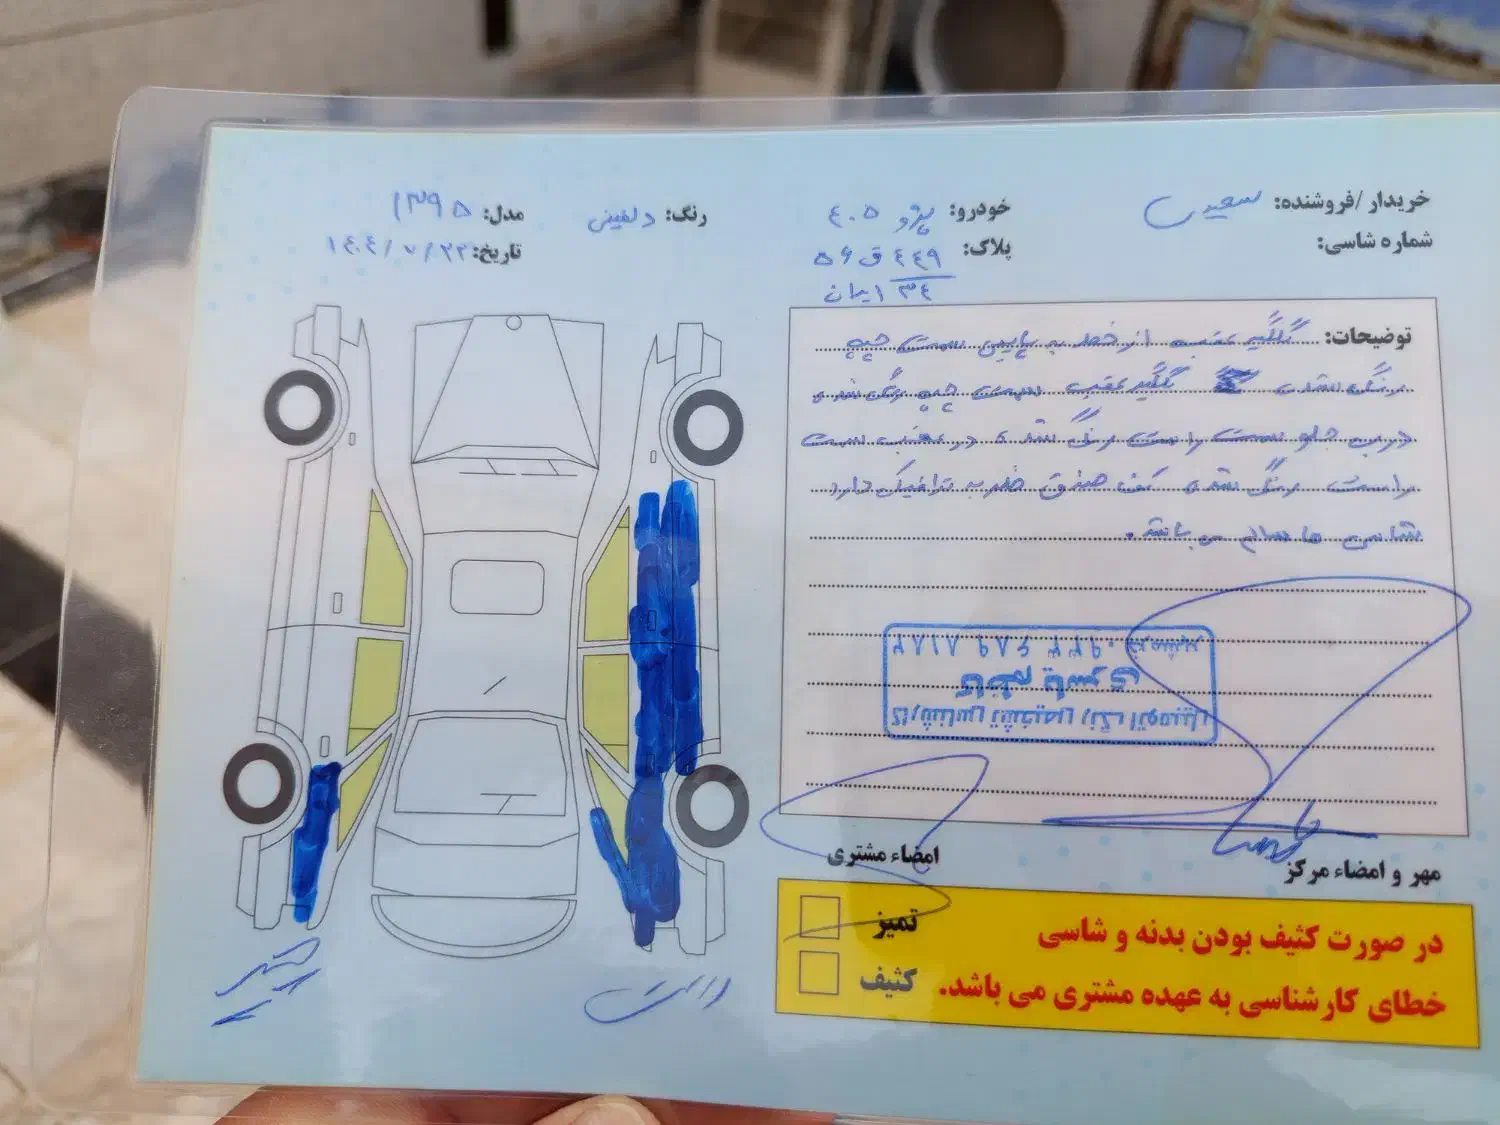 خریدار /فروشنده: سعیدی
خودرو: پژو ۴۰۵
رنگ: دلفینی
مدل: ۱۳۹۵
شماره شاسی:
پلاک: ۴۴۹ ق ۵۶
ایران ۳۴
تاریخ: ۱۴۰۴/۷/۲۲
توضیحات: گلگیر عقب از خط به پایین سمت چپ
رنگ شده گلگیر عقب سمت چپ رنگ شده
درب جلو سمت راست رنگ شده درب عقب سمت
راست رنگ شده کف صندوق ضربه ترافیک دارد
شاسی ها سالم می باشد.
کارشناس تشخیص رنگ اتومبیل
کاظم یاسری
خرمشهر ۰۹۳۳ ۶۸۹ ۸۱۸۲
امضاء مشتری
مهر و امضاء مرکز
چپ
راست
در صورت کثیف بودن بدنه و شاسی
خطای کارشناسی به عهده مشتری می باشد.
تمیز
کثیف